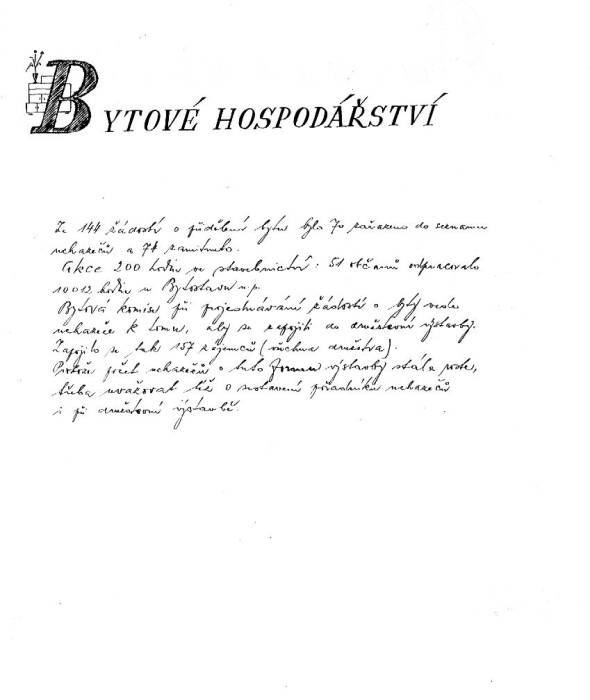 BYTOVÉ HOSPODÁŘSTVÍ
Ze 144 žádostí o přidělení bytu bylo 70 zařazeno do seznamu
uchazečů a 74 zamítnuto.
Akce 200 hodin ve stavebnictví: 51 občanů odpracovalo
10012 hodin u Bytostavu n.p.
Bytová komise při projednávání žádostí o byty vedla
uchazeče k tomu, aby se zapojili do družstevní výstavby.
Zapojilo se tak 157 zájemců (všechna družstva).
Protože počet uchazečů o tuto formu výstavby stále roste,
třeba uvažovat též o sestavení pořadníku uchazečů
i při družstevní výstavbě.